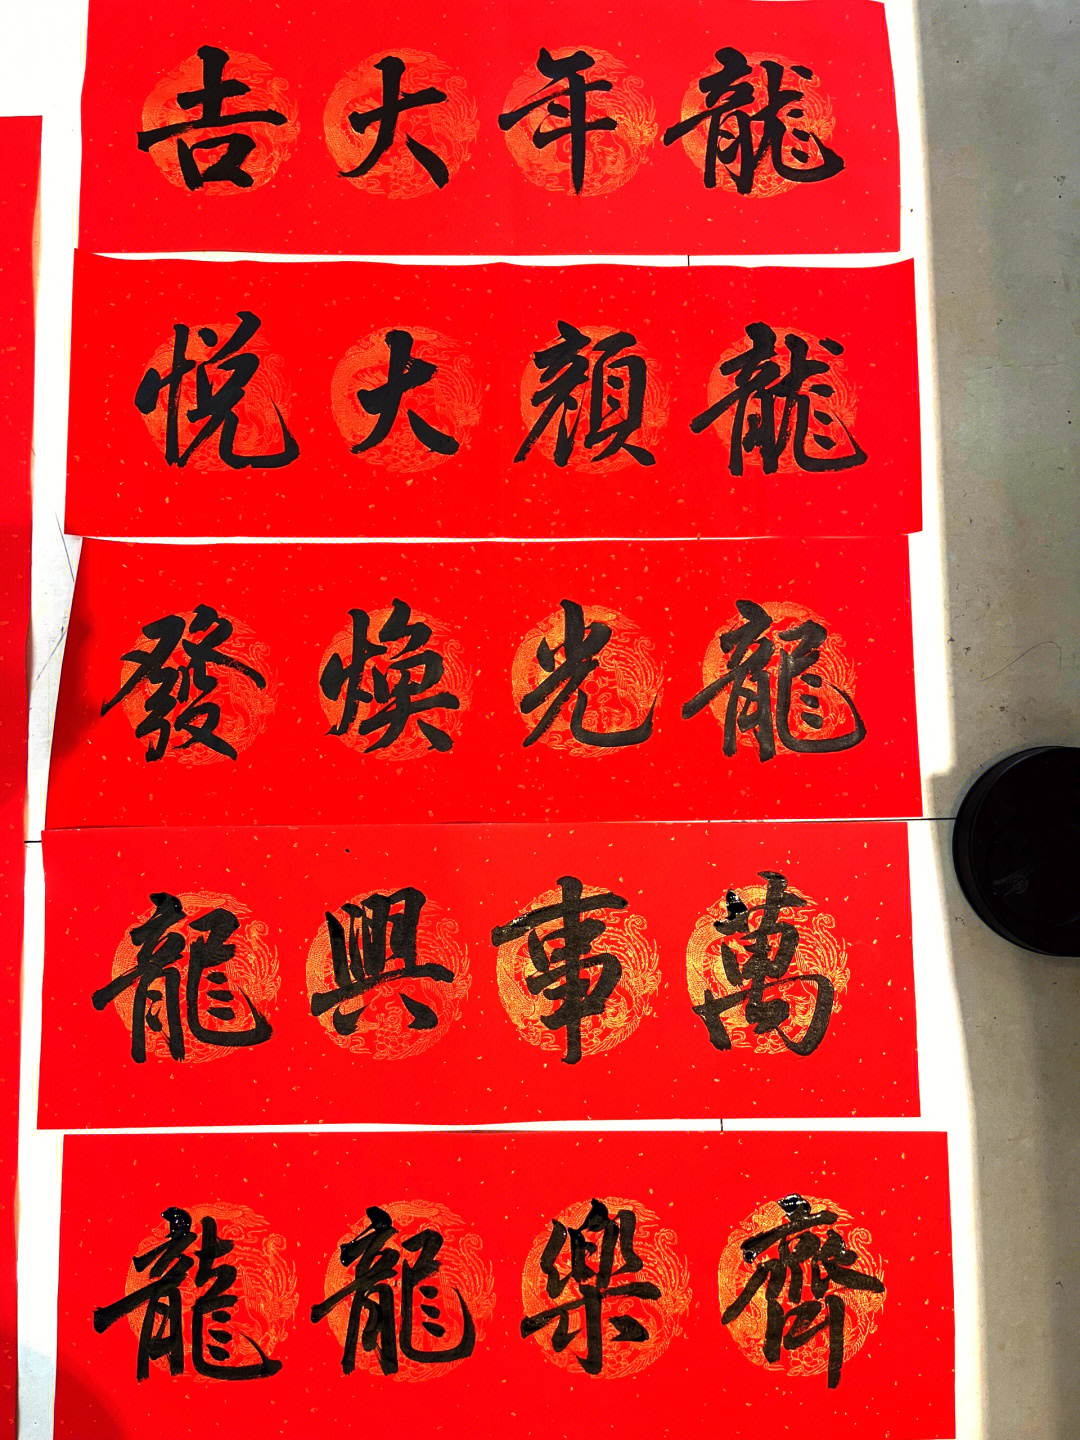 龍年大吉
龍顏大悅
龍光煥發
萬事興龍
齊樂龍龍